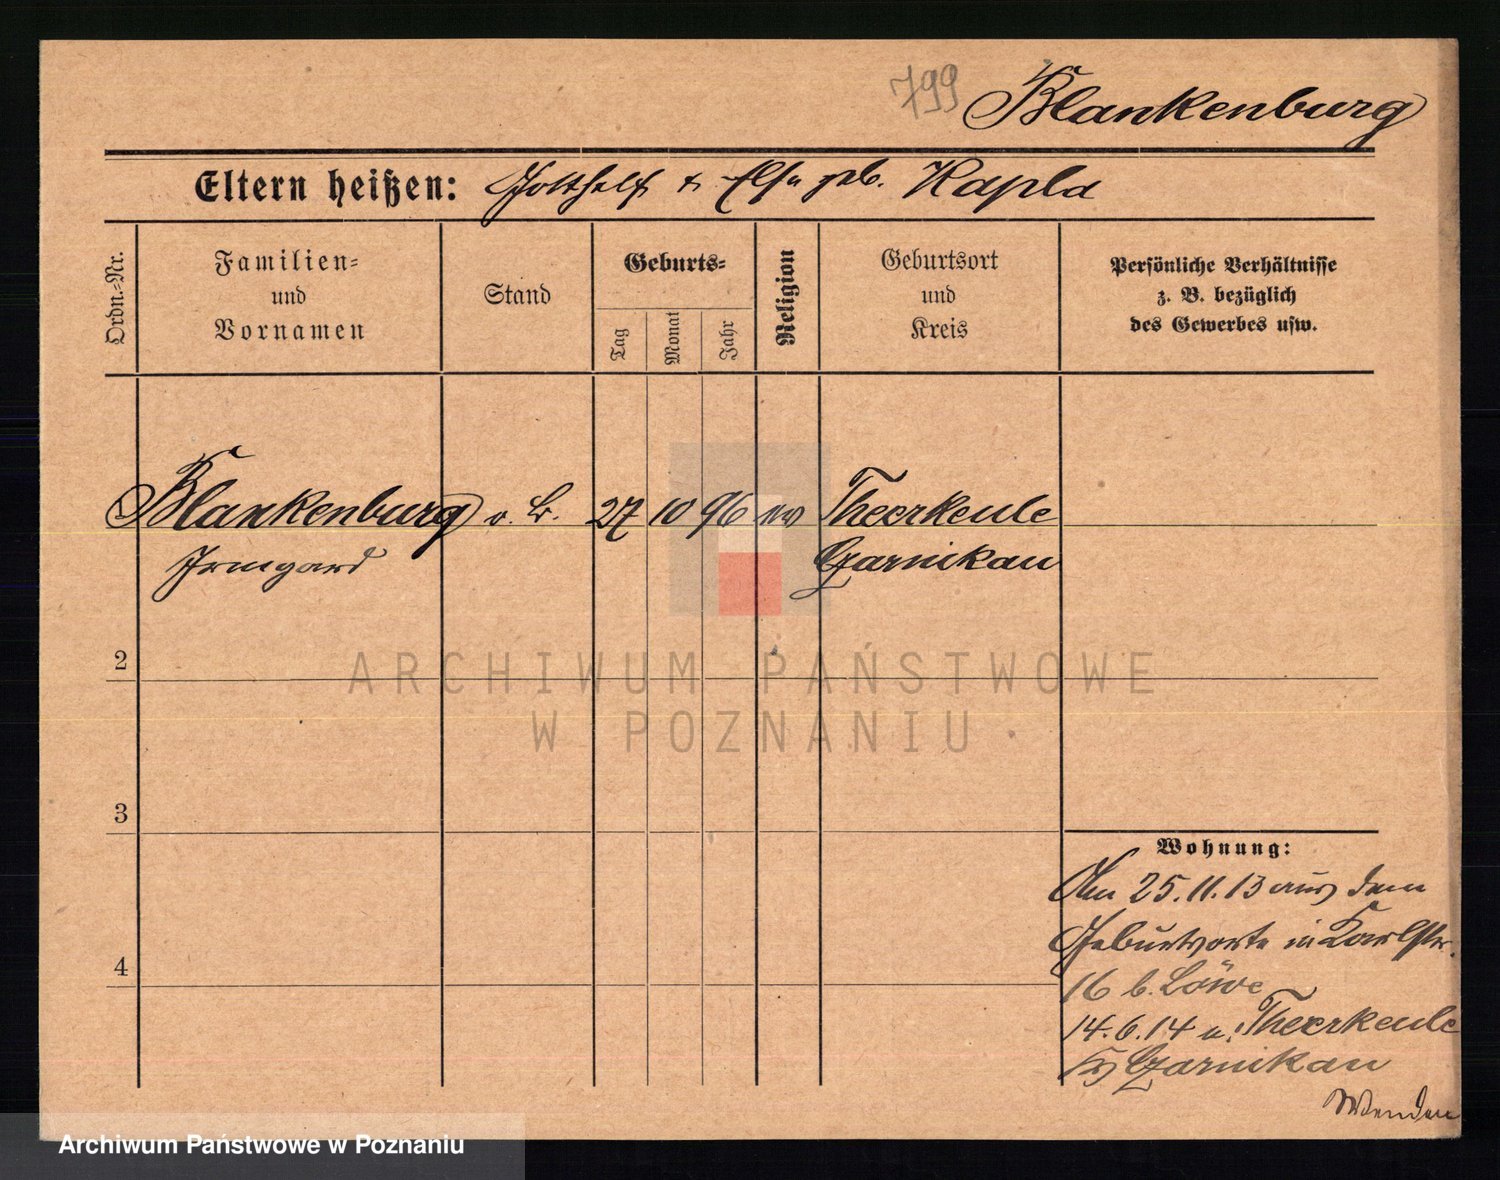 799 Blankenburg
Eltern heißen: Gotthelf & Else geb. Kapla
Ordn.-Nr.
Familien-
und
Vornamen
Stand
Geburts-
Tag
Monat
Jahr
Religion
Geburtsort
und
Kreis
Persönliche Verhältnisse
z. B. bezüglich
des Gewerbes usw.
Blankenburg o. B. 27 10 96 ev Theerkeule
Irmgard Czarnikau
2
ARCHIWUM PAŃSTWOWE
W POZNANIU
3
Wohnung:
Am 25.11.13 aus dem
Geburtsorte in Karlstr.
4
16 b. Löwe
14.6.14 n. Theerkeule
Kr Czarnikau
Wenden
Archiwum Państwowe w Poznaniu